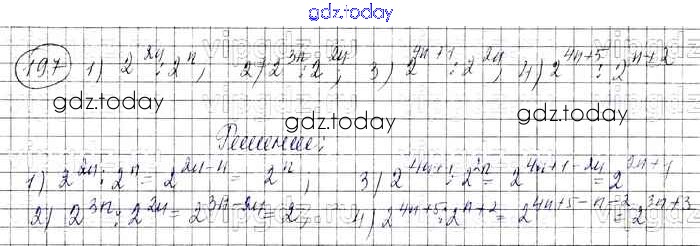 gdz.today
197 1) 2^{2n} : 2^n, 2) 2^{3n} : 2^{2n}, 3) 2^{4n+1} : 2^{2n}, 4) 2^{4n+5} : 2^{n+2}
gdz.today gdz.today gdz.today
Решение:
1) 2^{2n} : 2^n = 2^{2n-n} = 2^n, 3) 2^{4n+1} : 2^{2n} = 2^{4n+1-2n} = 2^{2n+1}
2) 2^{3n} : 2^{2n} = 2^{3n-2n} = 2^n, 4) 2^{4n+5} : 2^{n+2} = 2^{4n+5-n-2} = 2^{3n+3}